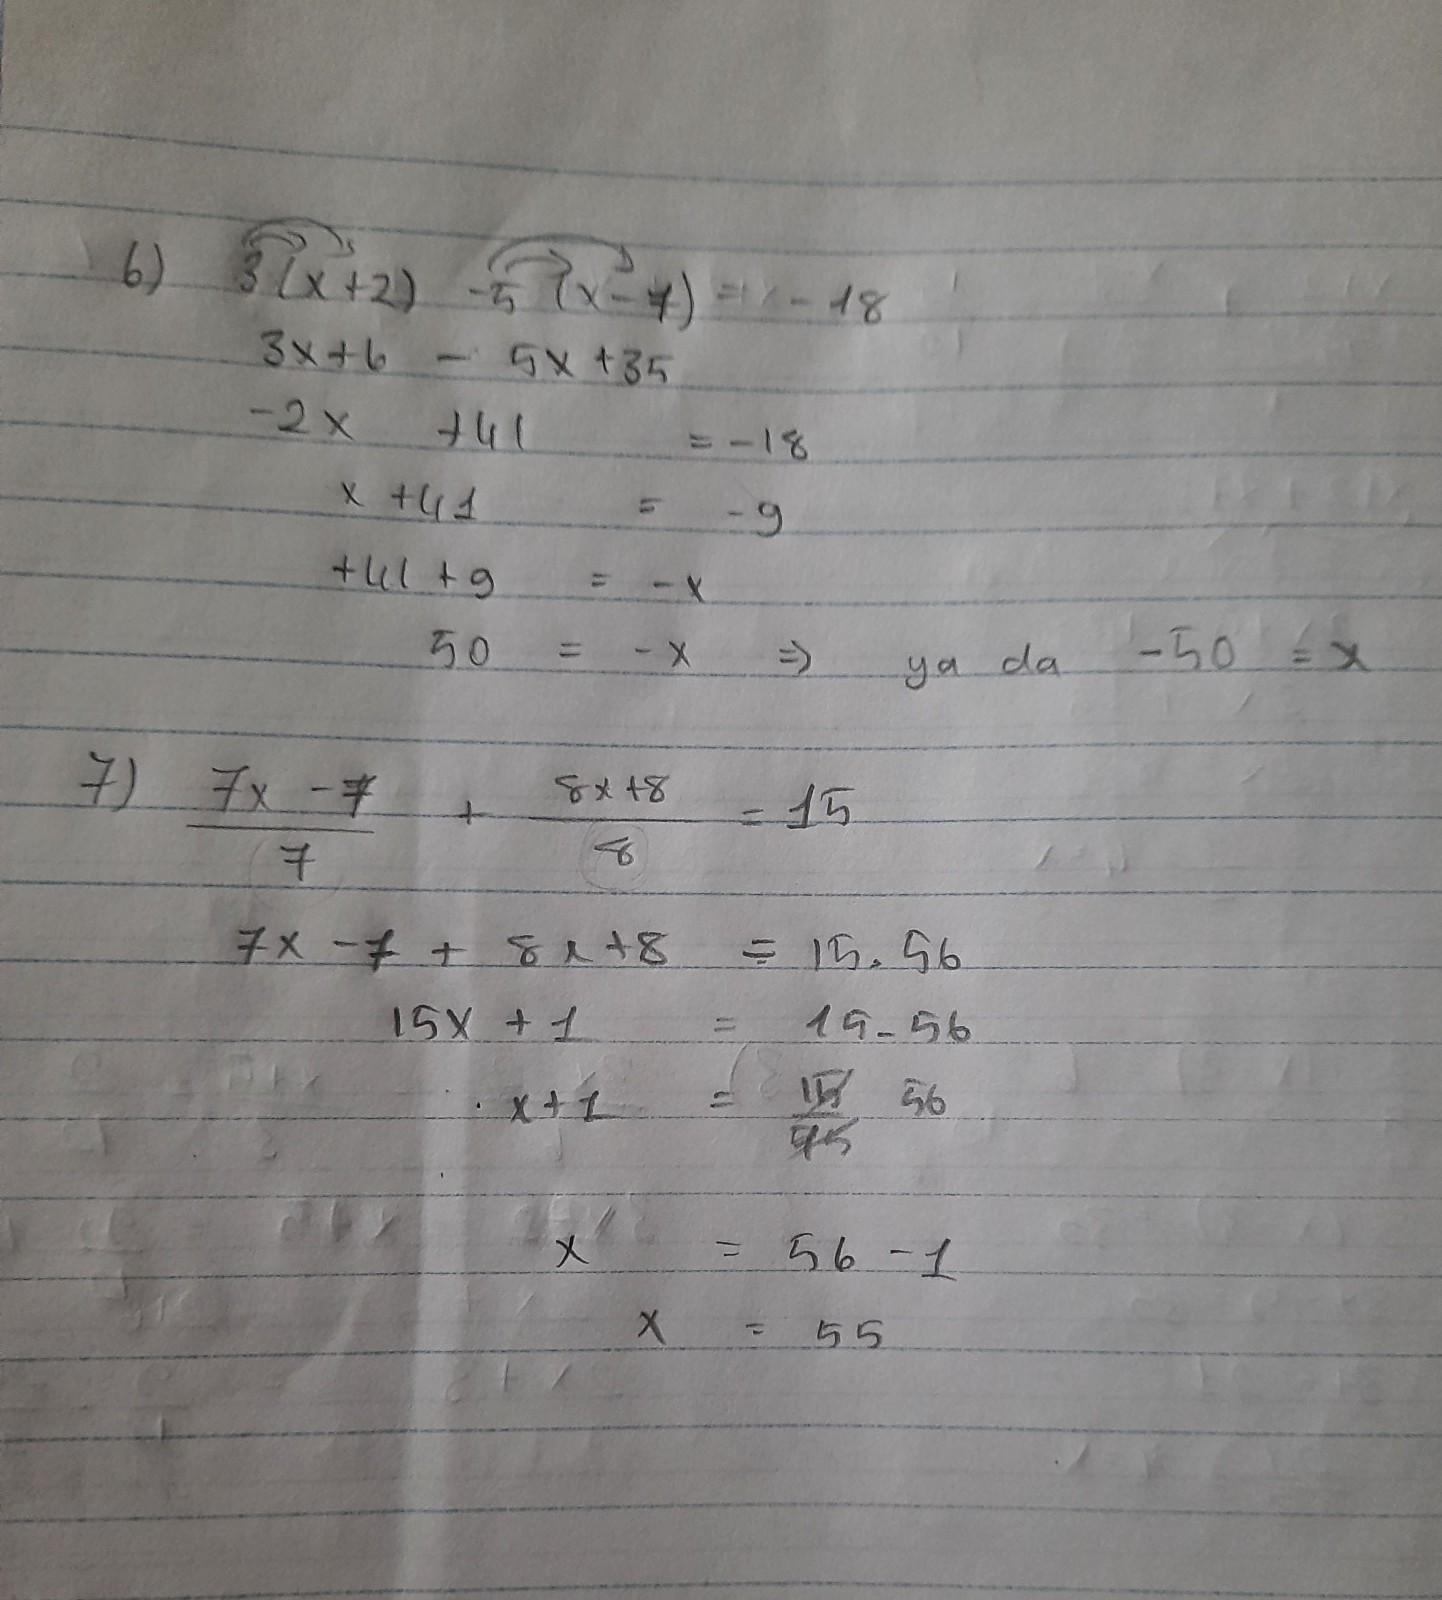 6) 3(x+2) -5 (x-7) = -18
3x+6 - 5x+35
-2x +41 = -18
x +41 = -9
+41 +9 = -x
50 = -x => ya da -50 = x
7) 7x -7 + 8x+8 = 15
7 8
7x -7 + 8x+8 = 15.56
15x + 1 = 15.56
x+1 = 15 56
x = 56 -1
x = 55